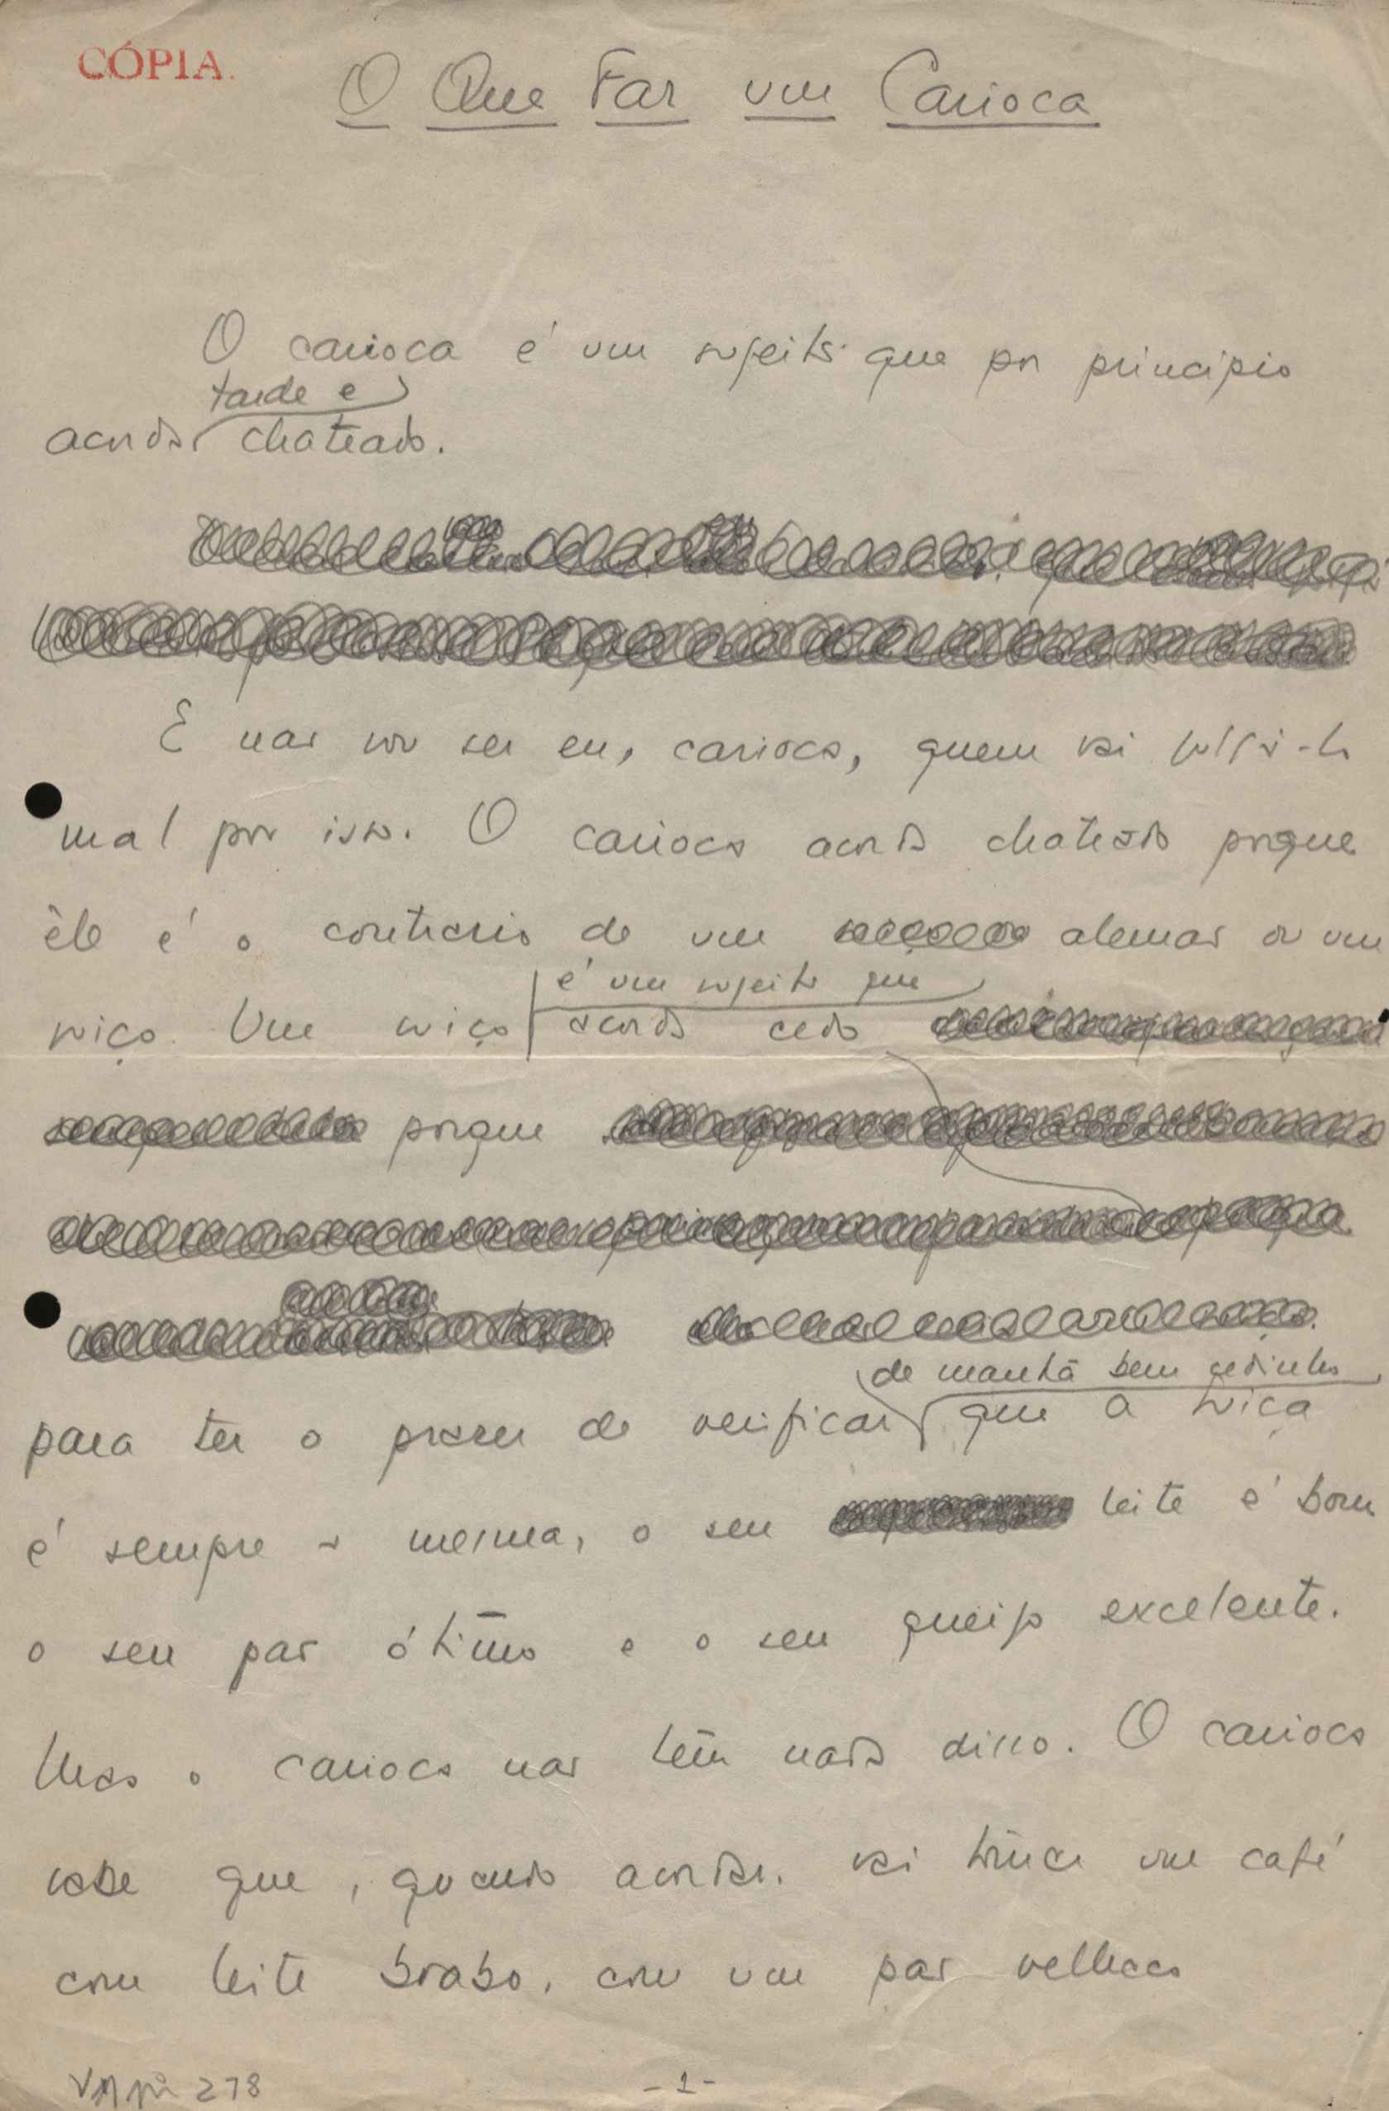 CÓPIA.
O Que Faz um Carioca
O carioca é um sujeito que por principio
tarde e
acorda chateado.
E não vou ser eu, carioca, quem vai
mal por isso. O carioca acorda chateado porque
êle é o contrario de um alemão ou um
é um sujeito que
suiço. Um suiço acorda cedo
porque
de manhã bem cedinho
para ter o prazer de verificar que a Suiça
é sempre a mesma, o seu leite é bom
o seu pão ótimo e o seu queijo excelente.
Mas o carioca não tem nada disso. O carioca
sabe que, quando acordar, vai tomar um café
com leite brabo, com um pão velhaco
VM nº 278
- 1 -